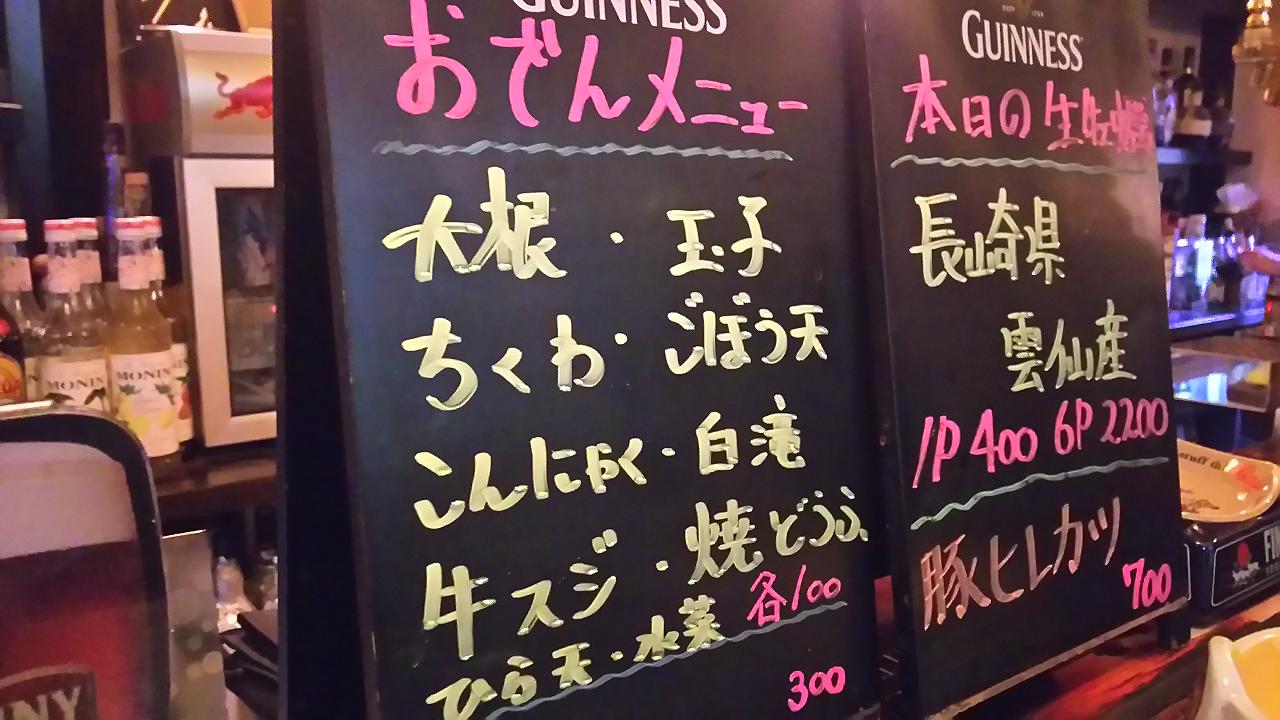 GUINNESS
おでんメニュー
大根・玉子
ちくわ・ごぼう天
こんにゃく・白滝
牛スジ・焼どうふ
各100
ひら天・水菜
300
GUINNESS
本日の生牡蠣
長崎県
雲仙産
1P 400 6P 2200
豚ヒレカツ
700
MONIN
MONIN